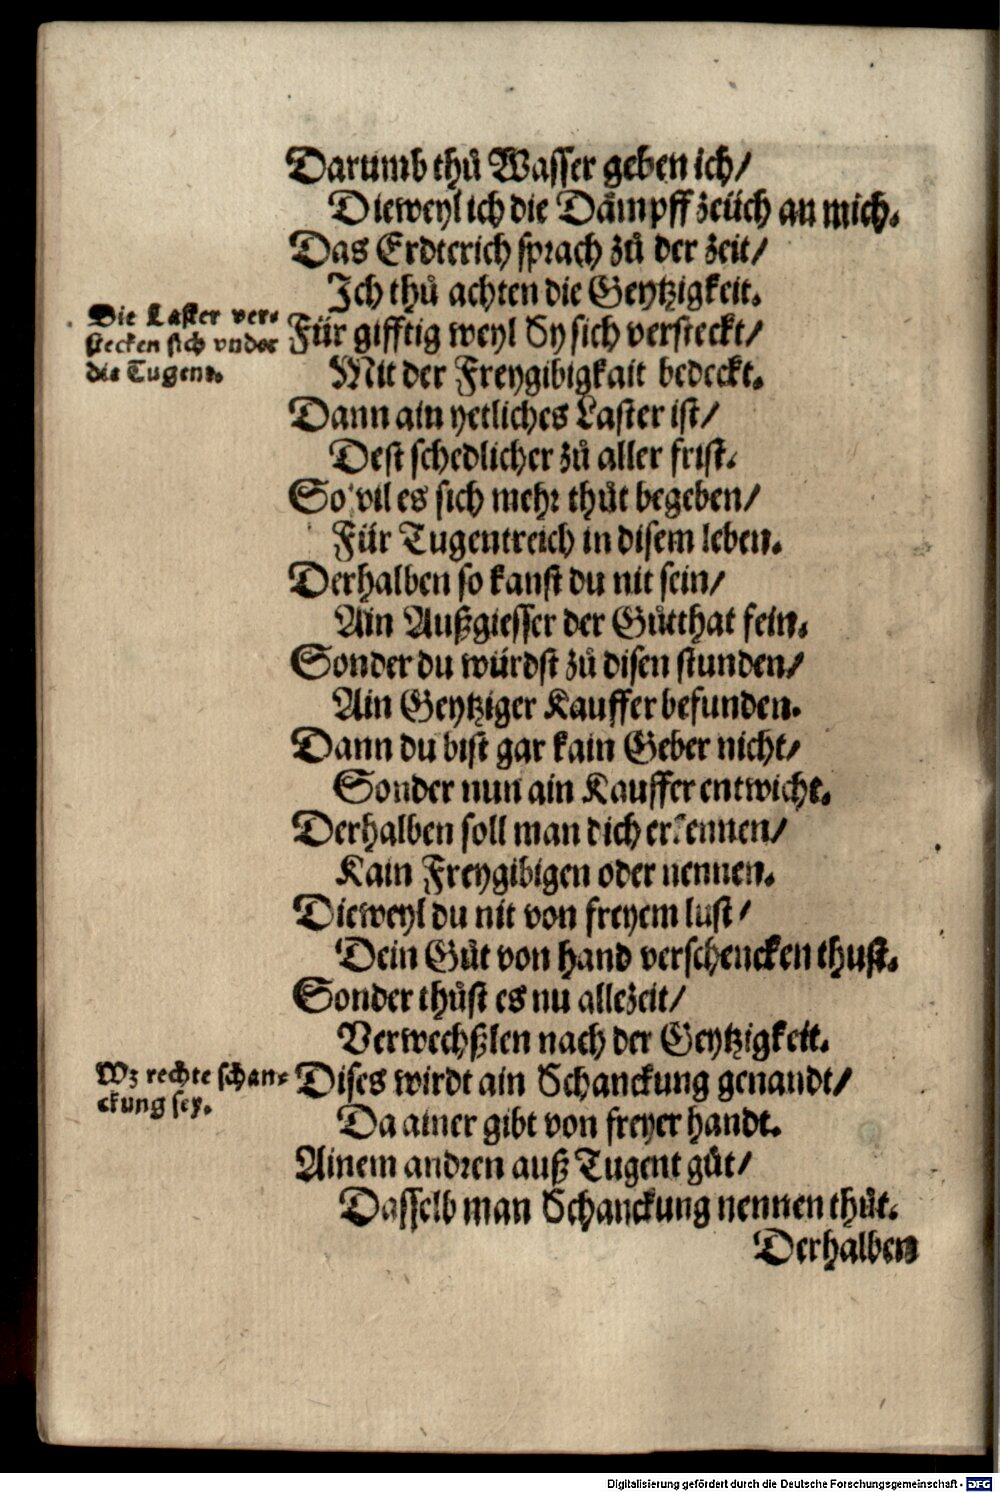 Darumb thů Wasser geben ich/
Dieweyl ich die Dämpff zeüch an mich.
Das Erdterich sprach zů der zeit/
Ich thů achten die Geytzigkeit.
Die Laster ver-
stecken sich vnder
die Tugent.
Für gifftig weyl Sy sich versteckt/
Mit der Freygibigkait bedeckt.
Dann ain yetliches Laster ist/
Dest schedlicher zů aller frist.
So vil es sich mehr thůt begeben/
Für Tugentreich in disem leben.
Derhalben so kanst du nit sein/
Ain Außgiesser der Gůtthat fein.
Sonder du würdst zů disen stunden/
Ain Geytziger Kauffer befunden.
Dann du bist gar kain Geber nicht/
Sonder nun ain Kauffer entwicht.
Derhalben soll man dich erkennen/
Kain Freygibigen oder nennen.
Dieweyl du nit von freyem lust/
Dein Gůt von hand verschencken thust.
Sonder thůst es nu allezeit/
Verwechßlen nach der Geytzigkeit.
Wz rechte schan-
ckung sey.
Dises wirdt ain Schanckung genandt/
Da ainer gibt von freyer handt.
Ainem andren auß Tugent gůt/
Dasselb man Schanckung nennen thůt.
Derhalben
Digitalisierung gefördert durch die Deutsche Forschungsgemeinschaft - DFG